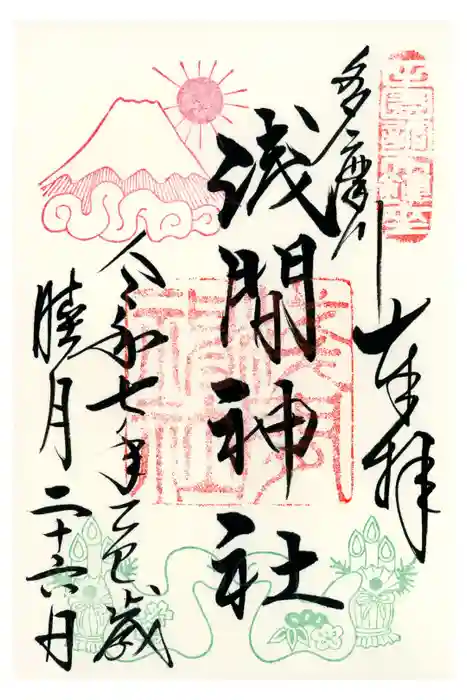 奉拝
多摩川
浅間神社
令和七年乙巳歳
睦月二十六日